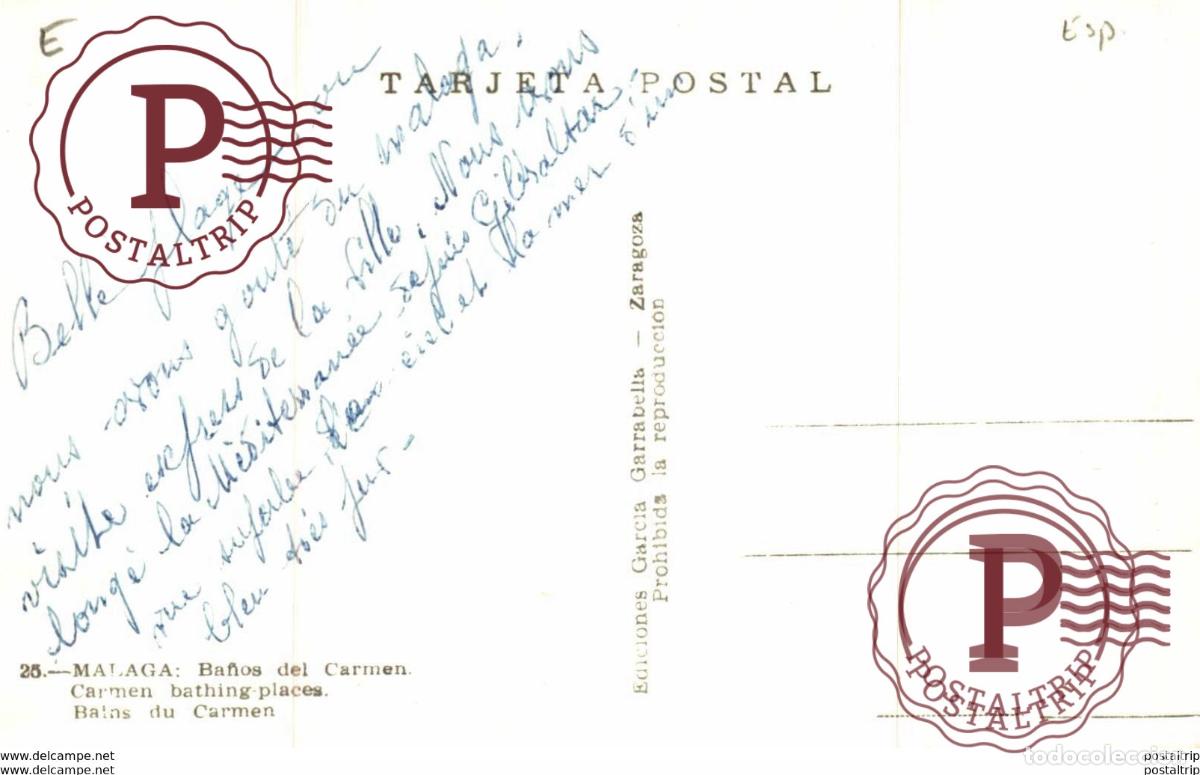 E
Esp.
TARJETA POSTAL
P
POSTALTRIP
Belle plage où
nous avons gouté du malaga.
visite express de la ville. Nous avons
longé la Méditerranée depuis Gibraltar
vue superbe, ciel et la mer d'un
bleu très pur-
Ediciones García Garrabella — Zaragoza
Prohibida la reproducción
25.—MALAGA: Baños del Carmen.
Carmen bathing-places.
Bains du Carmen
P
POSTALTRIP
POSTALTRIP
todocoleccion
www.delcampe.net
www.delcampe.net
postaltrip
postaltrip